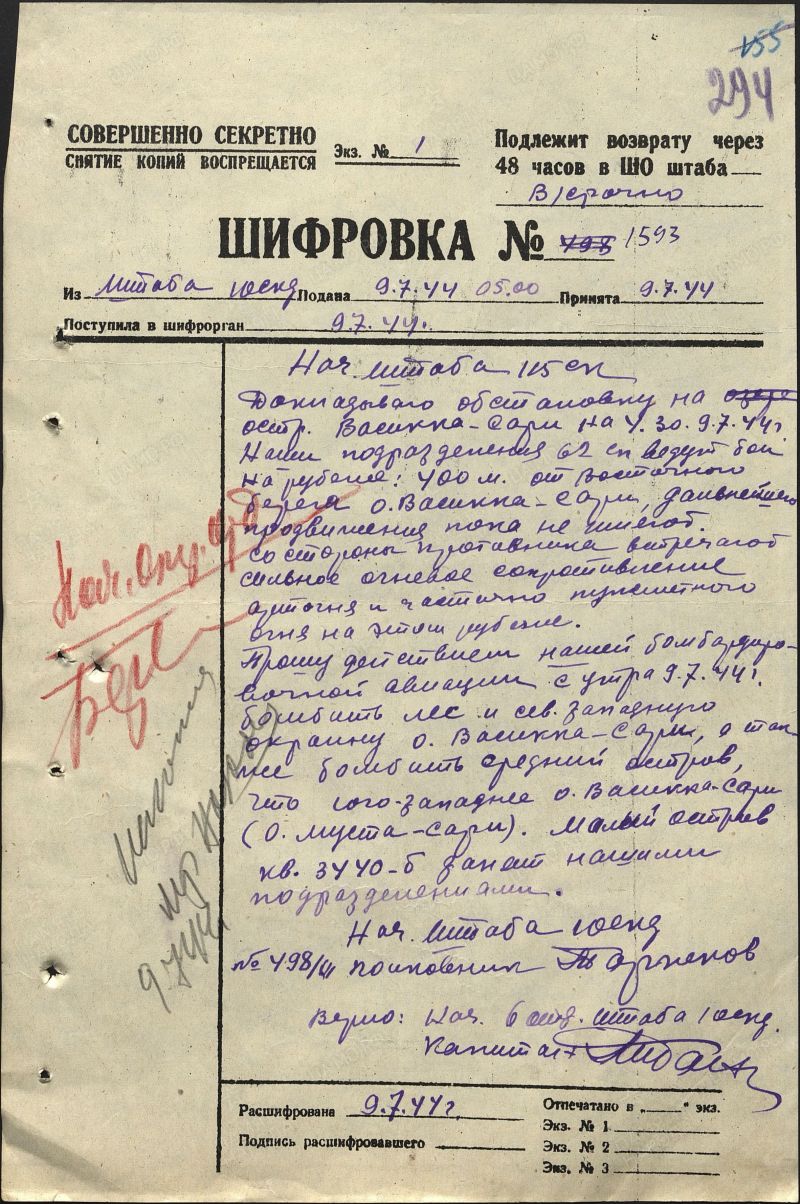 155
294
СОВЕРШЕННО СЕКРЕТНО
СНЯТИЕ КОПИЙ ВОСПРЕЩАЕТСЯ
Экз. № 1
Подлежит возврату через
48 часов в ШО штаба
В/срочно
ШИФРОВКА № 498 1593
Из Штаба 10скд Подана 9.7.44 05.00 Принята 9.7.44
Поступила в шифрорган 9.7.44г.
Нач штаба 115 ск
Докладываю обстановку на
остр. Васикка-Сари на 4.30. 9.7.44г
Наши подразделения 62 сп ведут бой
на рубеже: 400 м. от Восточного
берега о. Васикка-Сари, дальнейшего
продвижения пока не имеют.
Со стороны противника встречают
сильное огневое сопротивление
артогня и частично пулеметного
огня на этом рубеже.
Прошу действием нашей бомбардиро-
вочной авиации с утра 9.7.44г.
бомбить лес и сев. западную
окраину о. Васикка-Сари, а так-
же бомбить средний остров,
что юго-западнее о. Васикка-Сари
(о. Муста-Сари). Малый остров
кв. 3440-б занят нашими
подразделениями.
Нач. Штаба 10скд
№ 498/ш полковник
Верно: Нач. 6 отд. штаба 10скд.
Капитан
Нач. опер. отд
9.7.44
Расшифрована 9.7.44г
Подпись расшифровавшего
Отпечатано в „ “ экз.
Экз. № 1
Экз. № 2
Экз. № 3